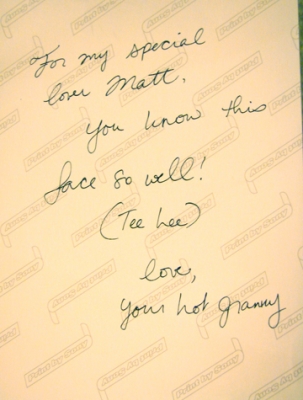 For my special
lover Matt,
you know this
face so well!
(Tee hee)
love,
your hot granny